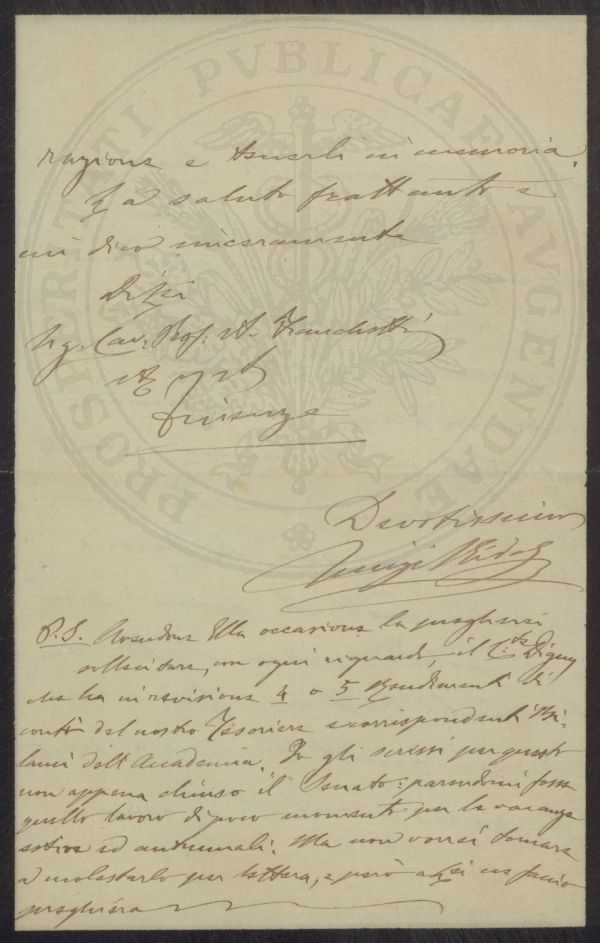 PROSPERITATI PVBLICAE AVGENDAE
razione e tenerli in memoria.
La saluto frattanto e
mi dico sinceramente
Di Lei
Sig. Cav: Prof: A. Franchetti
Firenze
Devotissimo
Luigi Ridolfi
P.S. Avendone Ella occasione la pregherei
sollecitare, con ogni riguardo, il Cte Digny
che ha in revisione 4 o 5 Rendimenti di
conti del nostro Tesoriere e corrispondenti Bi-
lanci dell'Accademia. Io gli scrissi per questo
non appena chiuso il Senato: parendomi fosse
quello lavoro di poco momento per le vacanze
estive ed autunnali. Ma non vorrei tornare
a molestarlo per lettera, e però a Lei ne faccio
preghiera